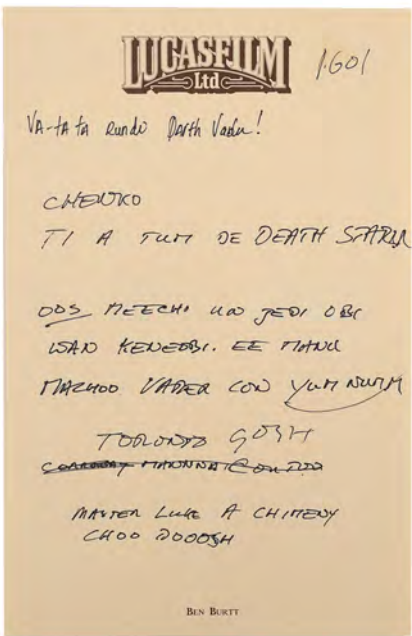 LUCASFILM
Ltd
1.601
VA-TA TA RUNDO Darth Vader!
CHENKO
TI A TUM DE DEATH STARUN
ODS MEECHI UN JEDI OBI
WAN KENEOBI. EE MANU
MACHOO VADER CON YUM NUUM
TORONTO GOSH
MANNNA
MASTER LUKE A CHIMENY
CHOO DOOOSH
BEN BURTT